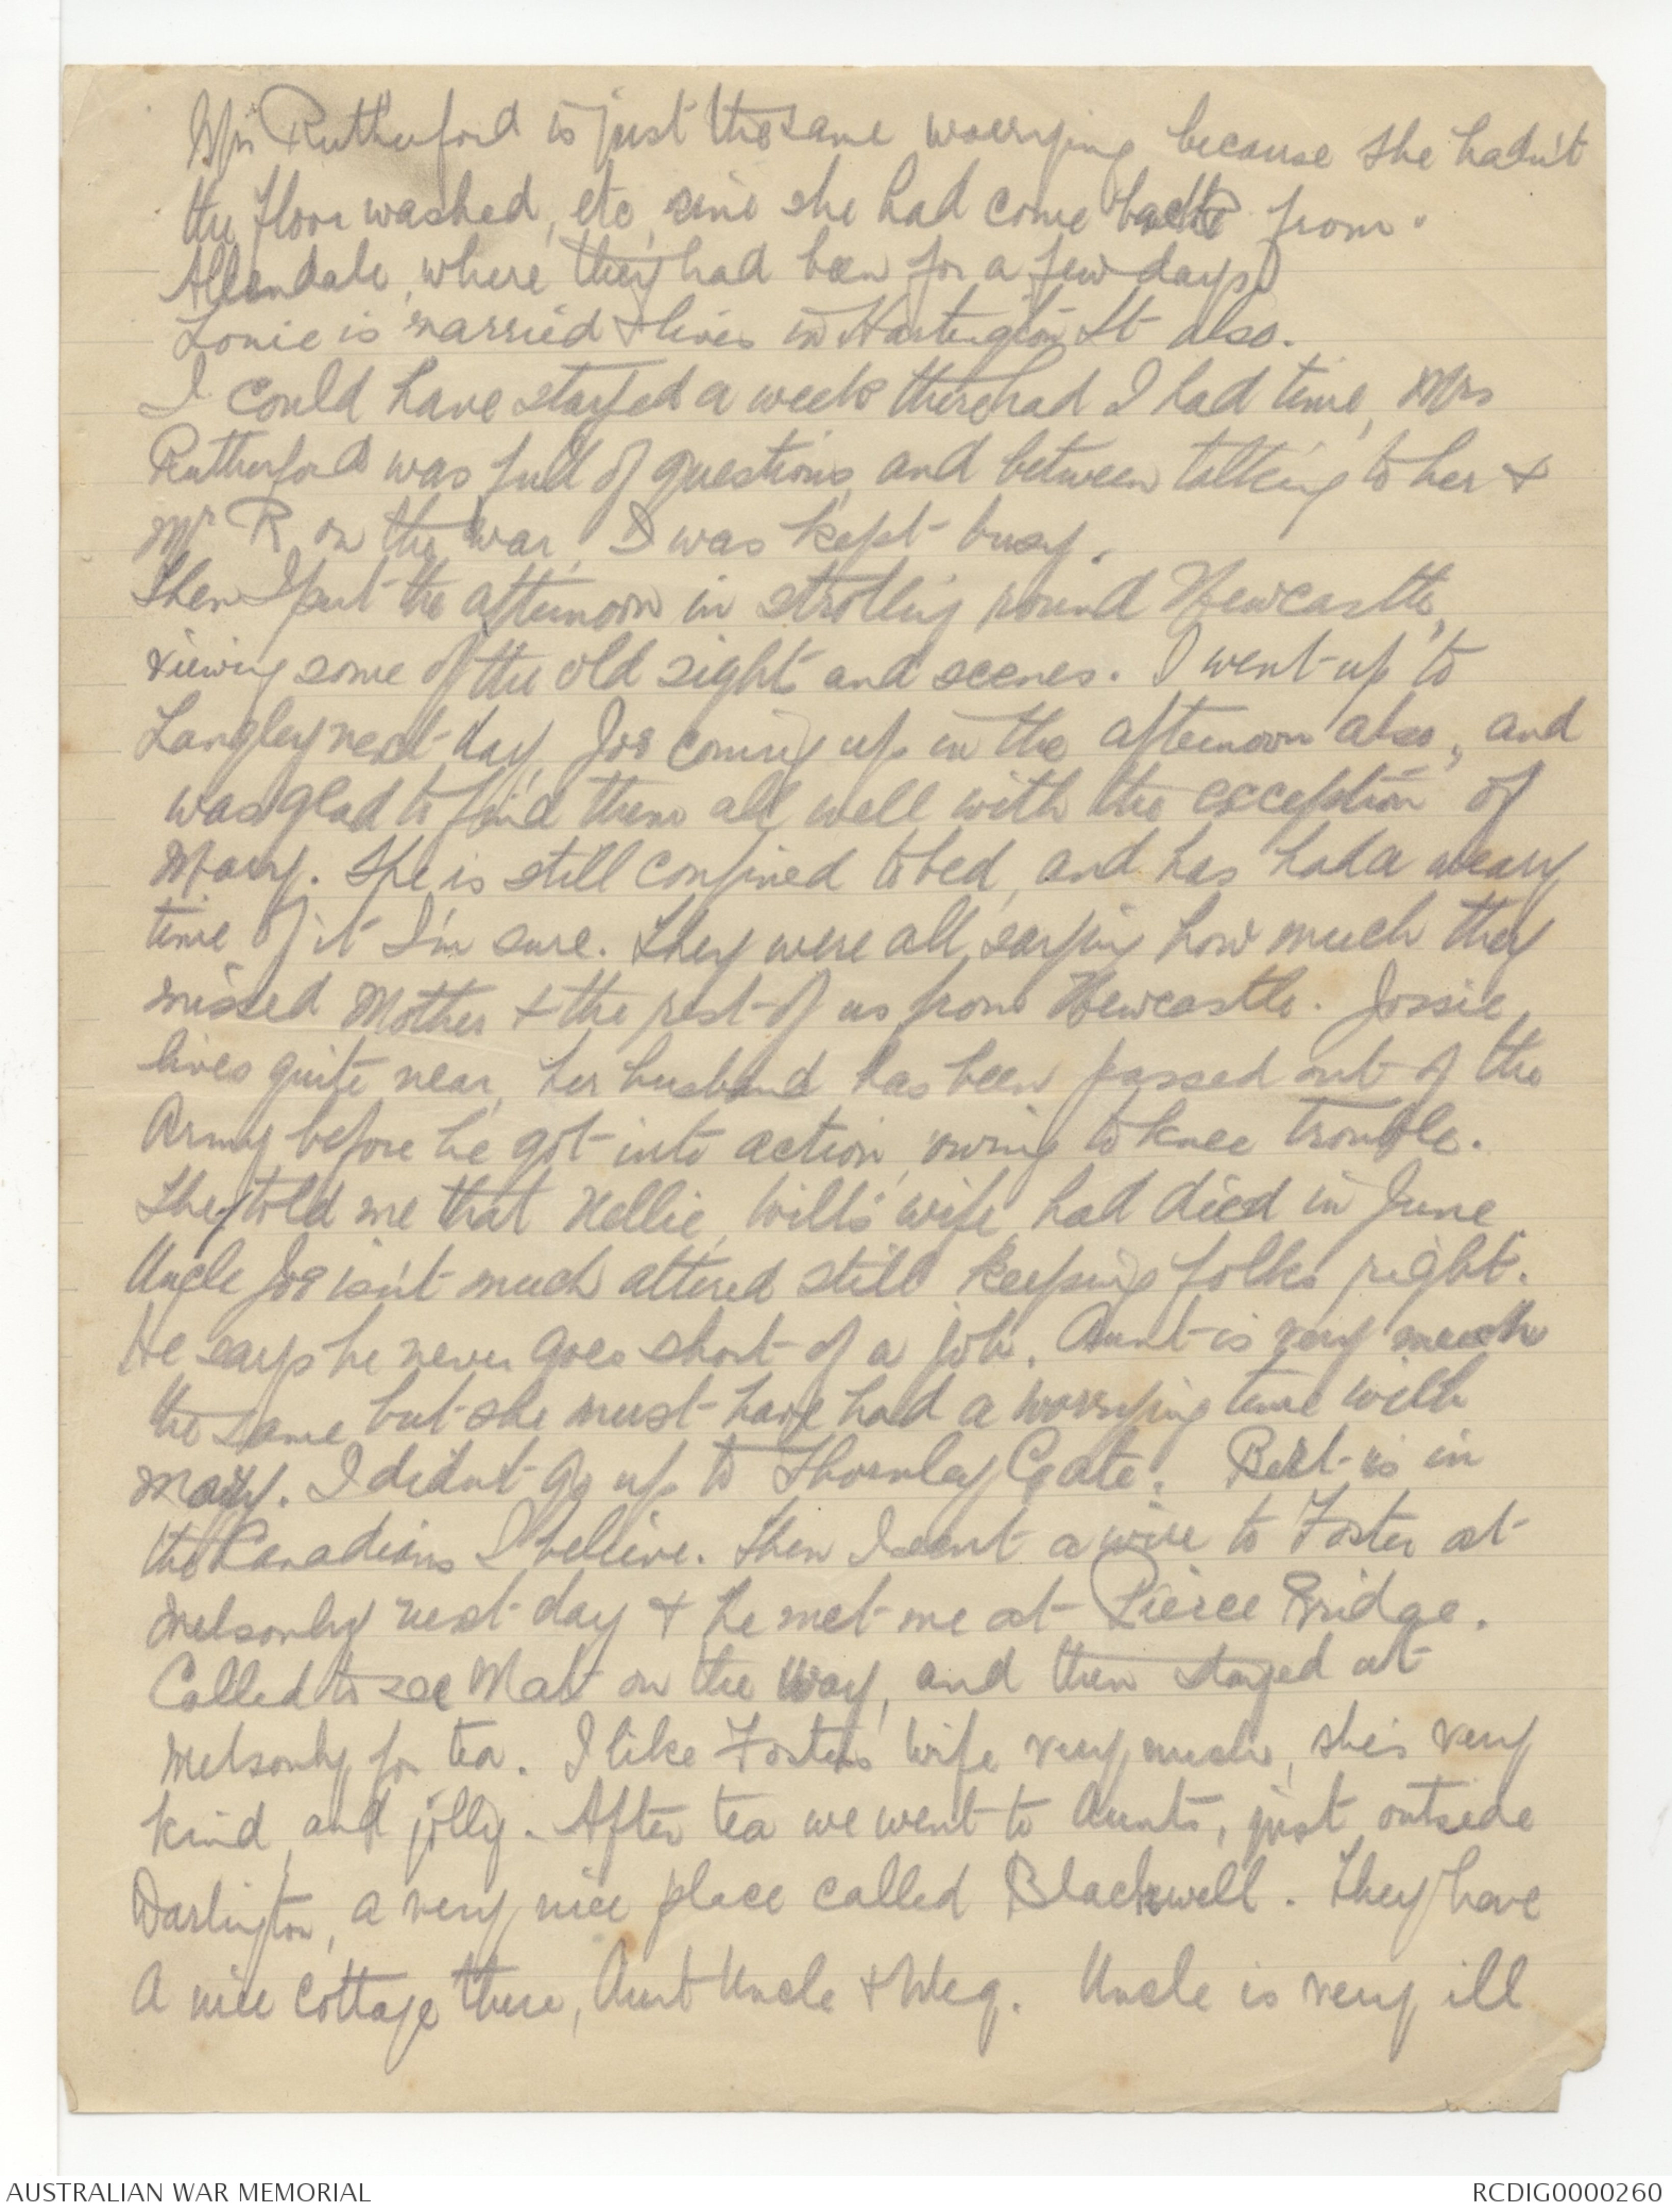 Mrs Rutherford is just the same worrying because she hadn't
the floor washed, etc, since she had come back from
Allendale, where they had been for a few days.
Lonie is married & lives in Hartington St also.
I could have stayed a week there had I had time, Mrs
Rutherford was full of questions, and between talking to her &
Mr R, on the war, I was kept busy.
Then I put the afternoon in strolling round Newcastle,
viewing some of the old sights and scenes. I went up to
Langley next day, Joe coming up in the afternoon also, and
was glad to find them all well with the exception of
Mary. She is still confined to bed, and has had a weary
time of it I'm sure. They were all saying how much they
missed Mother & the rest of us from Newcastle. Jossie
lives quite near, her husband has been passed out of the
Army before he got into action, owing to knee trouble.
They told me that Nellie, Will's wife, had died in June.
Uncle Joe isn't much altered still keeping folks right.
He says he never goes short of a job. Aunt is very much
the same but she must have had a worrying time with
Mary. I didn't go up to Thornley Gate. Bert is in
the Canadians I believe. Then I sent a wire to Foster at
Melsonby next day & he met me at Pierce Bridge.
Called to see Mat on the way, and then stayed at
Melsonby for tea. I like Foster's wife very much, she's very
kind and jolly. After tea we went to Aunts, just outside
Darlington, a very nice place called Blackwell. They have
a nice cottage there, Aunt Uncle & Meg. Uncle is very ill
AUSTRALIAN WAR MEMORIAL
RCDIG0000260